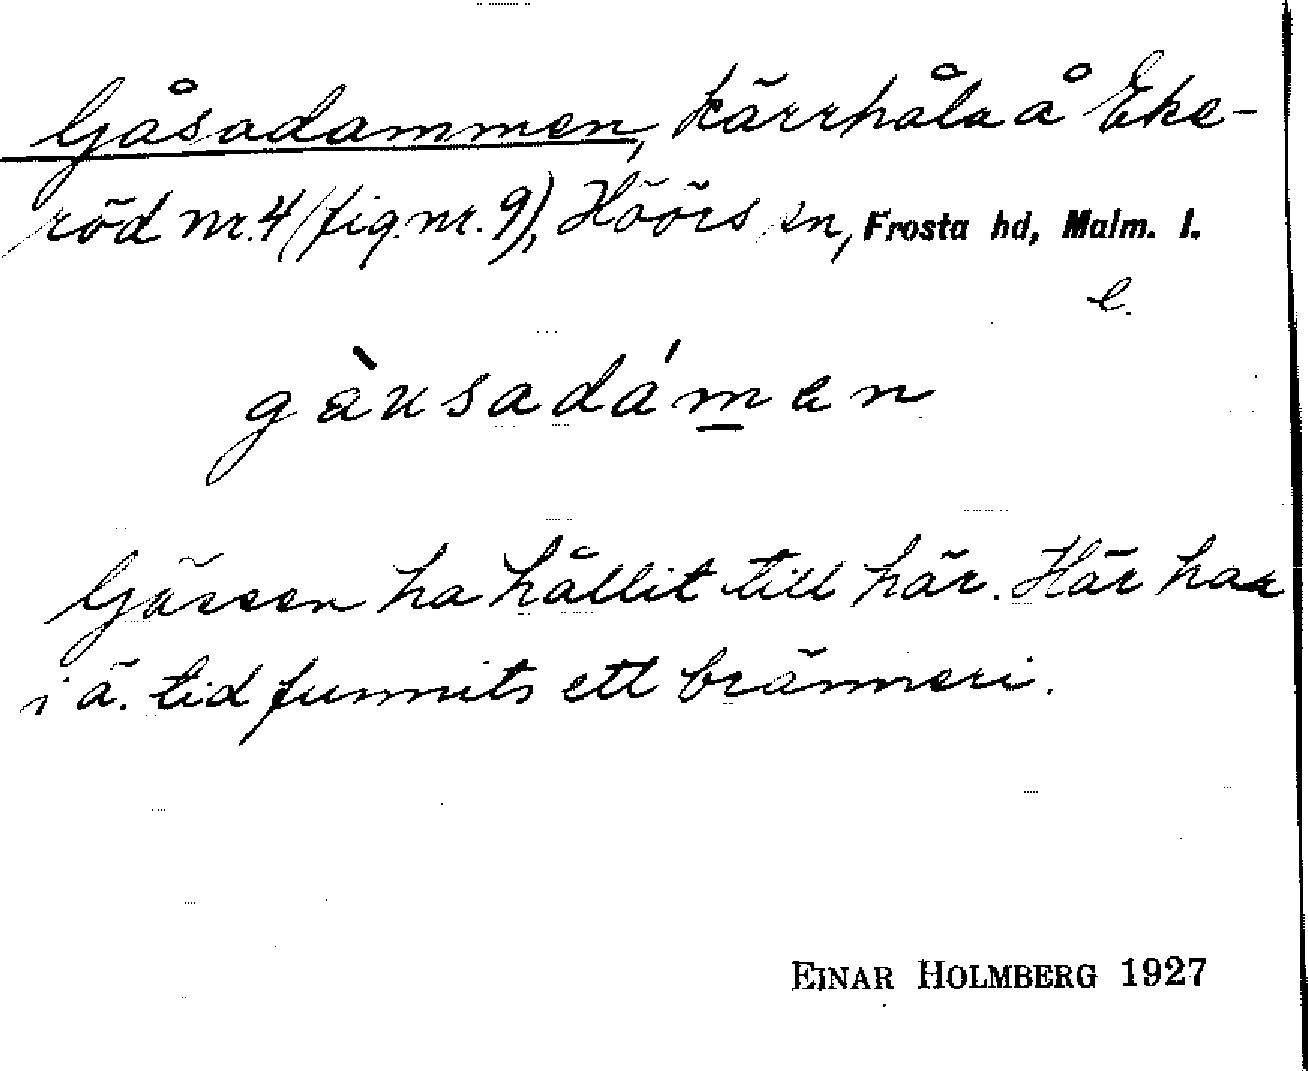 Gåsadammen, kärrhåla å Eke-
röd nr. 4 (fig. nr. 9), Höörs sn, Frosta hd, Malm. l.
e.
gàusadámen
Gässen ha hållit till här. Här har
i ä. tid funnits ett bränneri.
EINAR HOLMBERG 1927